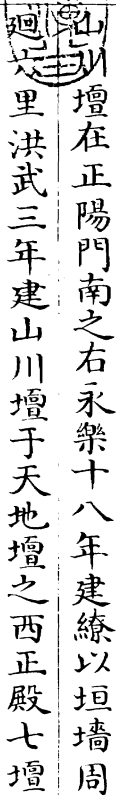 山川壇在正陽門南之右永樂十八年建繚以垣墻周
廻六里洪武三年建山川壇于天地壇之西正殿七壇